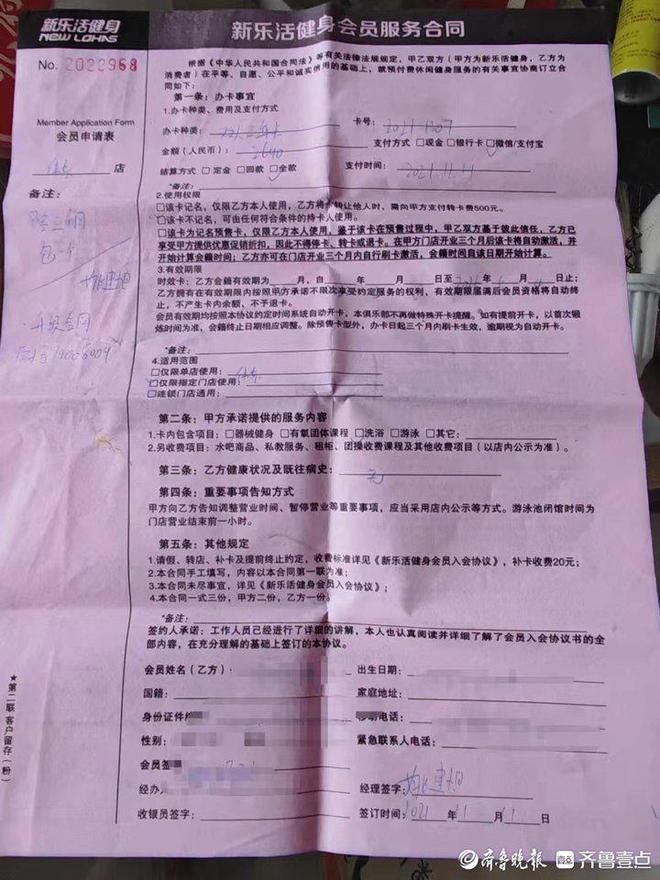 新乐活健身
NEW LOHAS
新乐活健身会员服务合同
No. 2022968
Member Application Form
会员申请表
店
备注：
根据《中华人民共和国合同法》等有关法律法规规定，甲乙双方（甲方为新乐活健身，乙方为
消费者）在平等、自愿、公平和诚实信用的基础上，就预付费休闲健身服务的有关事宜协商订立合
同如下：
第一条：办卡事宜
1.办卡种类、费用及支付方式
办卡种类： 卡号：
金额（人民币）： 2640 支付方式 □现金 □银行卡 □微信/支付宝
结算方式 □定金 □回款 □全款 支付时间： 2021.11.11
*备注：
2.使用权限
□该卡记名，仅限乙方本人使用，乙方将卡转让他人时，需向甲方支付转卡费500元。
□该卡不记名，可由任何符合条件的持卡人使用。
□该卡为记名预售卡，仅限乙方本人使用，鉴于该卡在预售过程中，甲乙双方基于彼此信任，乙方已
享受甲方提供优惠促销折扣，因此不得停卡、转卡或退卡。在甲方门店开业三个月后该卡将自动激活，并
开始计算会籍时间；乙方亦可在门店开业三个月内自行刷卡激活，会籍时间自该日期开始计算。
3.有效期限
时效卡：乙方会籍有效期为 月，自 年 月 日至 年 月 日止；
乙方拥有在有效期限内按照甲方承诺不限次享受约定服务的权利，有效期限届满后会员资格将自动终
止，不产生卡内余额，不予退卡。
会员有效期均按照本协议约定时间系统自动开卡，本俱乐部不再做特殊开卡提醒。如有提前开卡，以首次锻
炼时间为准，会籍终止日期相应调整。除预售卡型外，办卡日起三个月内刷卡生效，逾期视为自动开卡。
*备注：
4.适用范围
□仅限单店使用：
□仅限指定门店使用：
□连锁门店通用：
第二条：甲方承诺提供的服务内容
1.卡内包含项目：□器械健身 □有氧团体课程 □洗浴 □游泳 □其它：
2.另收费项目：水吧商品、私教服务、租柜、团操收费课程及其他收费项目（以店内公示为准）。
第三条：乙方健康状况及既往病史： 无
第四条：重要事项告知方式
甲方向乙方告知调整营业时间、暂停营业等重要事项，应当采用店内公示等方式。游泳池闭馆时间为
门店营业结束前一小时。
第五条：其他规定
1.请假、转店、补卡及提前终止约定，收费标准详见《新乐活健身会员入会协议》，补卡收费20元；
2.本合同手工填写，内容以本合同第一联为准；
3.本合同未尽事宜，详见《新乐活健身会员入会协议》；
4.本合同一式三份，甲方二份，乙方一份。
*备注：
签约人承诺：工作人员已经进行了详细的讲解，本人也认真阅读并详细了解了会员入会协议书的全
部内容，在充分理解的基础上签订的本协议。
会员姓名（乙方）： 出生日期：
国籍： 家庭地址：
身份证件 电话：
性别： 紧急联系人电话：
会员签
经办 经理签字：
收银员签字： 签订时间：2021 年 11 月 11 日
★第二联 客户留存（粉）
齐鲁晚报 齐鲁壹点